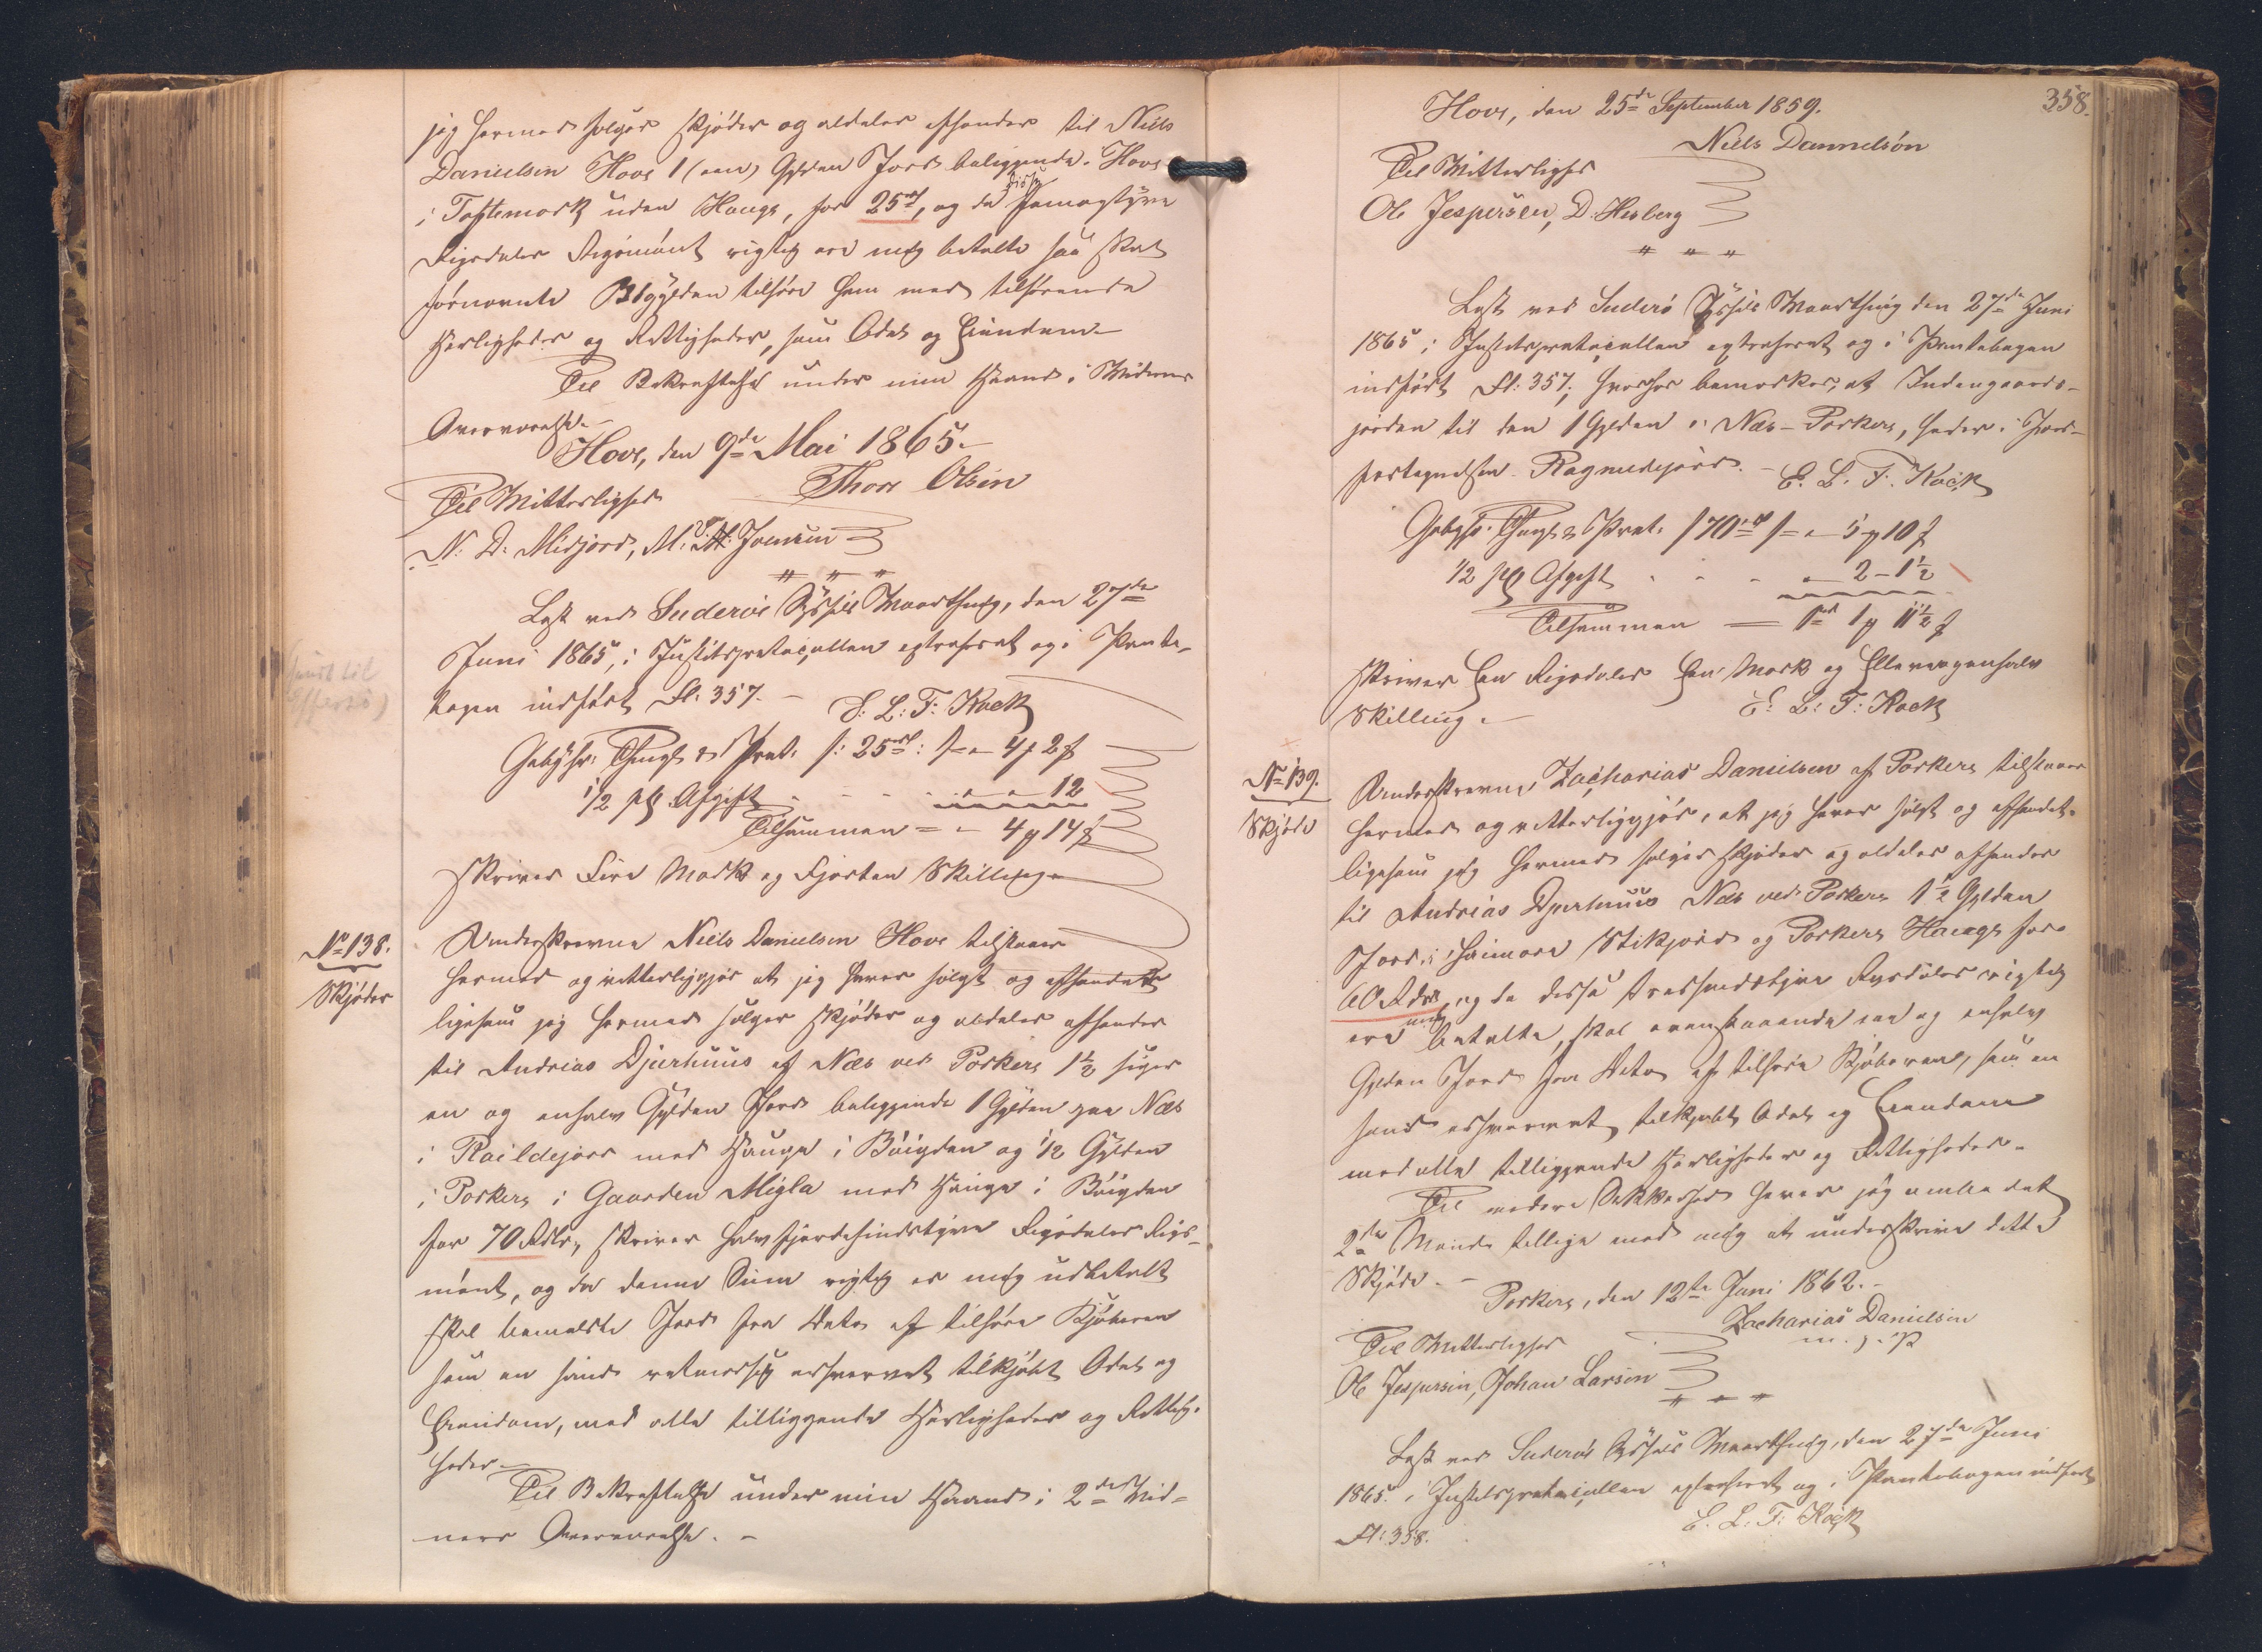 jeg hermed sælger skjøder og aldeles afhænder til Niels
Danielsen Hove 1 (een) Gylden Jord beliggende i Hove
i Toftemork uden Hauge, for 25rd, og da disse femogtyve
Rigsdaler Rigsmønt rigtig ere mig betalte saa skal
fornævnte 1 Gylden tilhøre ham med tilhørende
Herligheder og Rettigheder, som Odel og Eiendom
Til Bekræftelse under min Haand i Widners
Overværelse.
Hove, den 9de Mai 1865.
Thor Olsen
Til Witterlighed
N. D. Midjord, M. Joensen
Læst ved Suderøe Syssels Vaarthing, den 27de
Juni 1865, i Justitsprotocollen extraheret og i Pante-
bogen indført Fl. 357.
E. L. F. Kock
Gebyhr: Thingl & Prot. /: 25rd :/ = 4 # 2 ß
1/2 pCt Afgift 12
Tilsammen = 4 # 14 ß
skriver Fire Mark og Fjorten Skilling
No 138.
Skjøder
Underskrevne Niels Danielsen Hove tilstaaer
hermed og vitterliggjør at jeg haver solgt og afhændet
ligesom jeg hermed sælger skjøder og aldeles afhænder
til Andrias Djurhuus af Næs ved Porkere 1½ siger
en og enhalv Gylden Jord beliggende 1 Gylden paa Næs
i Raildejord med Hauge i Bøigden og 1/2 Gylden
i Porkere i Gaarden Migla med Hauge i Bøigden
for 70 Rdlr, skriver halvfjerdesindstyve Rigsdaler Rigs-
mønt, og da denne Sum rigtig er mig udbetalt
skal bemeldte Jord fra Dato af tilhøre Kjøberen
som en hans retmæssig erhvervet tilkjøbt Odel og
Eiendom, med alle tilliggende Herligheder og Rettig-
heder
Til Bekræftelse under min Haand i 2de Vid-
ners Overværelse.
358.
Hove, den 25de September 1859.
Niels Dannelsøn
Til Witterlighed
Ole Jespersen, D. Hesberg
Læst ved Suderø Syssels Vaarthing den 27de Juni
1865 i Justitsprotocollen extraheret og i Pantebogen
indført Fl: 357, hvorhos bemærkes, at Indengaards-
jorden til den 1 Gylden i Næs-Porkere, heder i Jord-
fortegnelsen Ragnudejord.
E. L. F. Kock
Gebyhr: Thingl & Prot. /70rd/ = 5 # 10 ß
1/2 pCt Afgift 2 - 1½
Tilsammen = 1rd 1 # 11½ ß
skriver En Rigsdaler En Mark og Elleveogenhalv
Skilling.
E. L. F. Kock
No 139.
Skjøde
Underskrevne Zacharias Danielsen af Porkere tilstaaer
hermed og vitterliggjør, at jeg haver solgt og afhændet
ligesom jeg hermed sælger skjøder og aldeles afhænder
til Andrias Djurhuus Næs ved Porkere 1½ Gylden
Jord i Heimore Stikjord og Porkere Hauge for
60 Rdlr, og da disse tresindstyve Rigsdaler rigtig
ere mig betalte, skal ovenstaaende een og enhalv
Gylden Jord fra Dato af tilhøre Kjøberen, som en
hans erhvervet tilkjøbt Odel og Eiendom
med alle tilliggende Herligheder og Rettigheder.
Til vedere Sikkerhed haver jeg ombedet
2de Mænd tillige med mig at underskrive dette
Skjøde.
Porkere, den 12te Juni 1862.
Zacharias Danielsen
m. f. P
Til Witterlighed
Ole Jespersen, Johan Larsen
Læst ved Suderøe Syssels Vaarthing, den 27de Juni
1865. i Justitsprotocollen extraheret og i Pantebogen indført
Fl: 358.
E. L. F. Kock